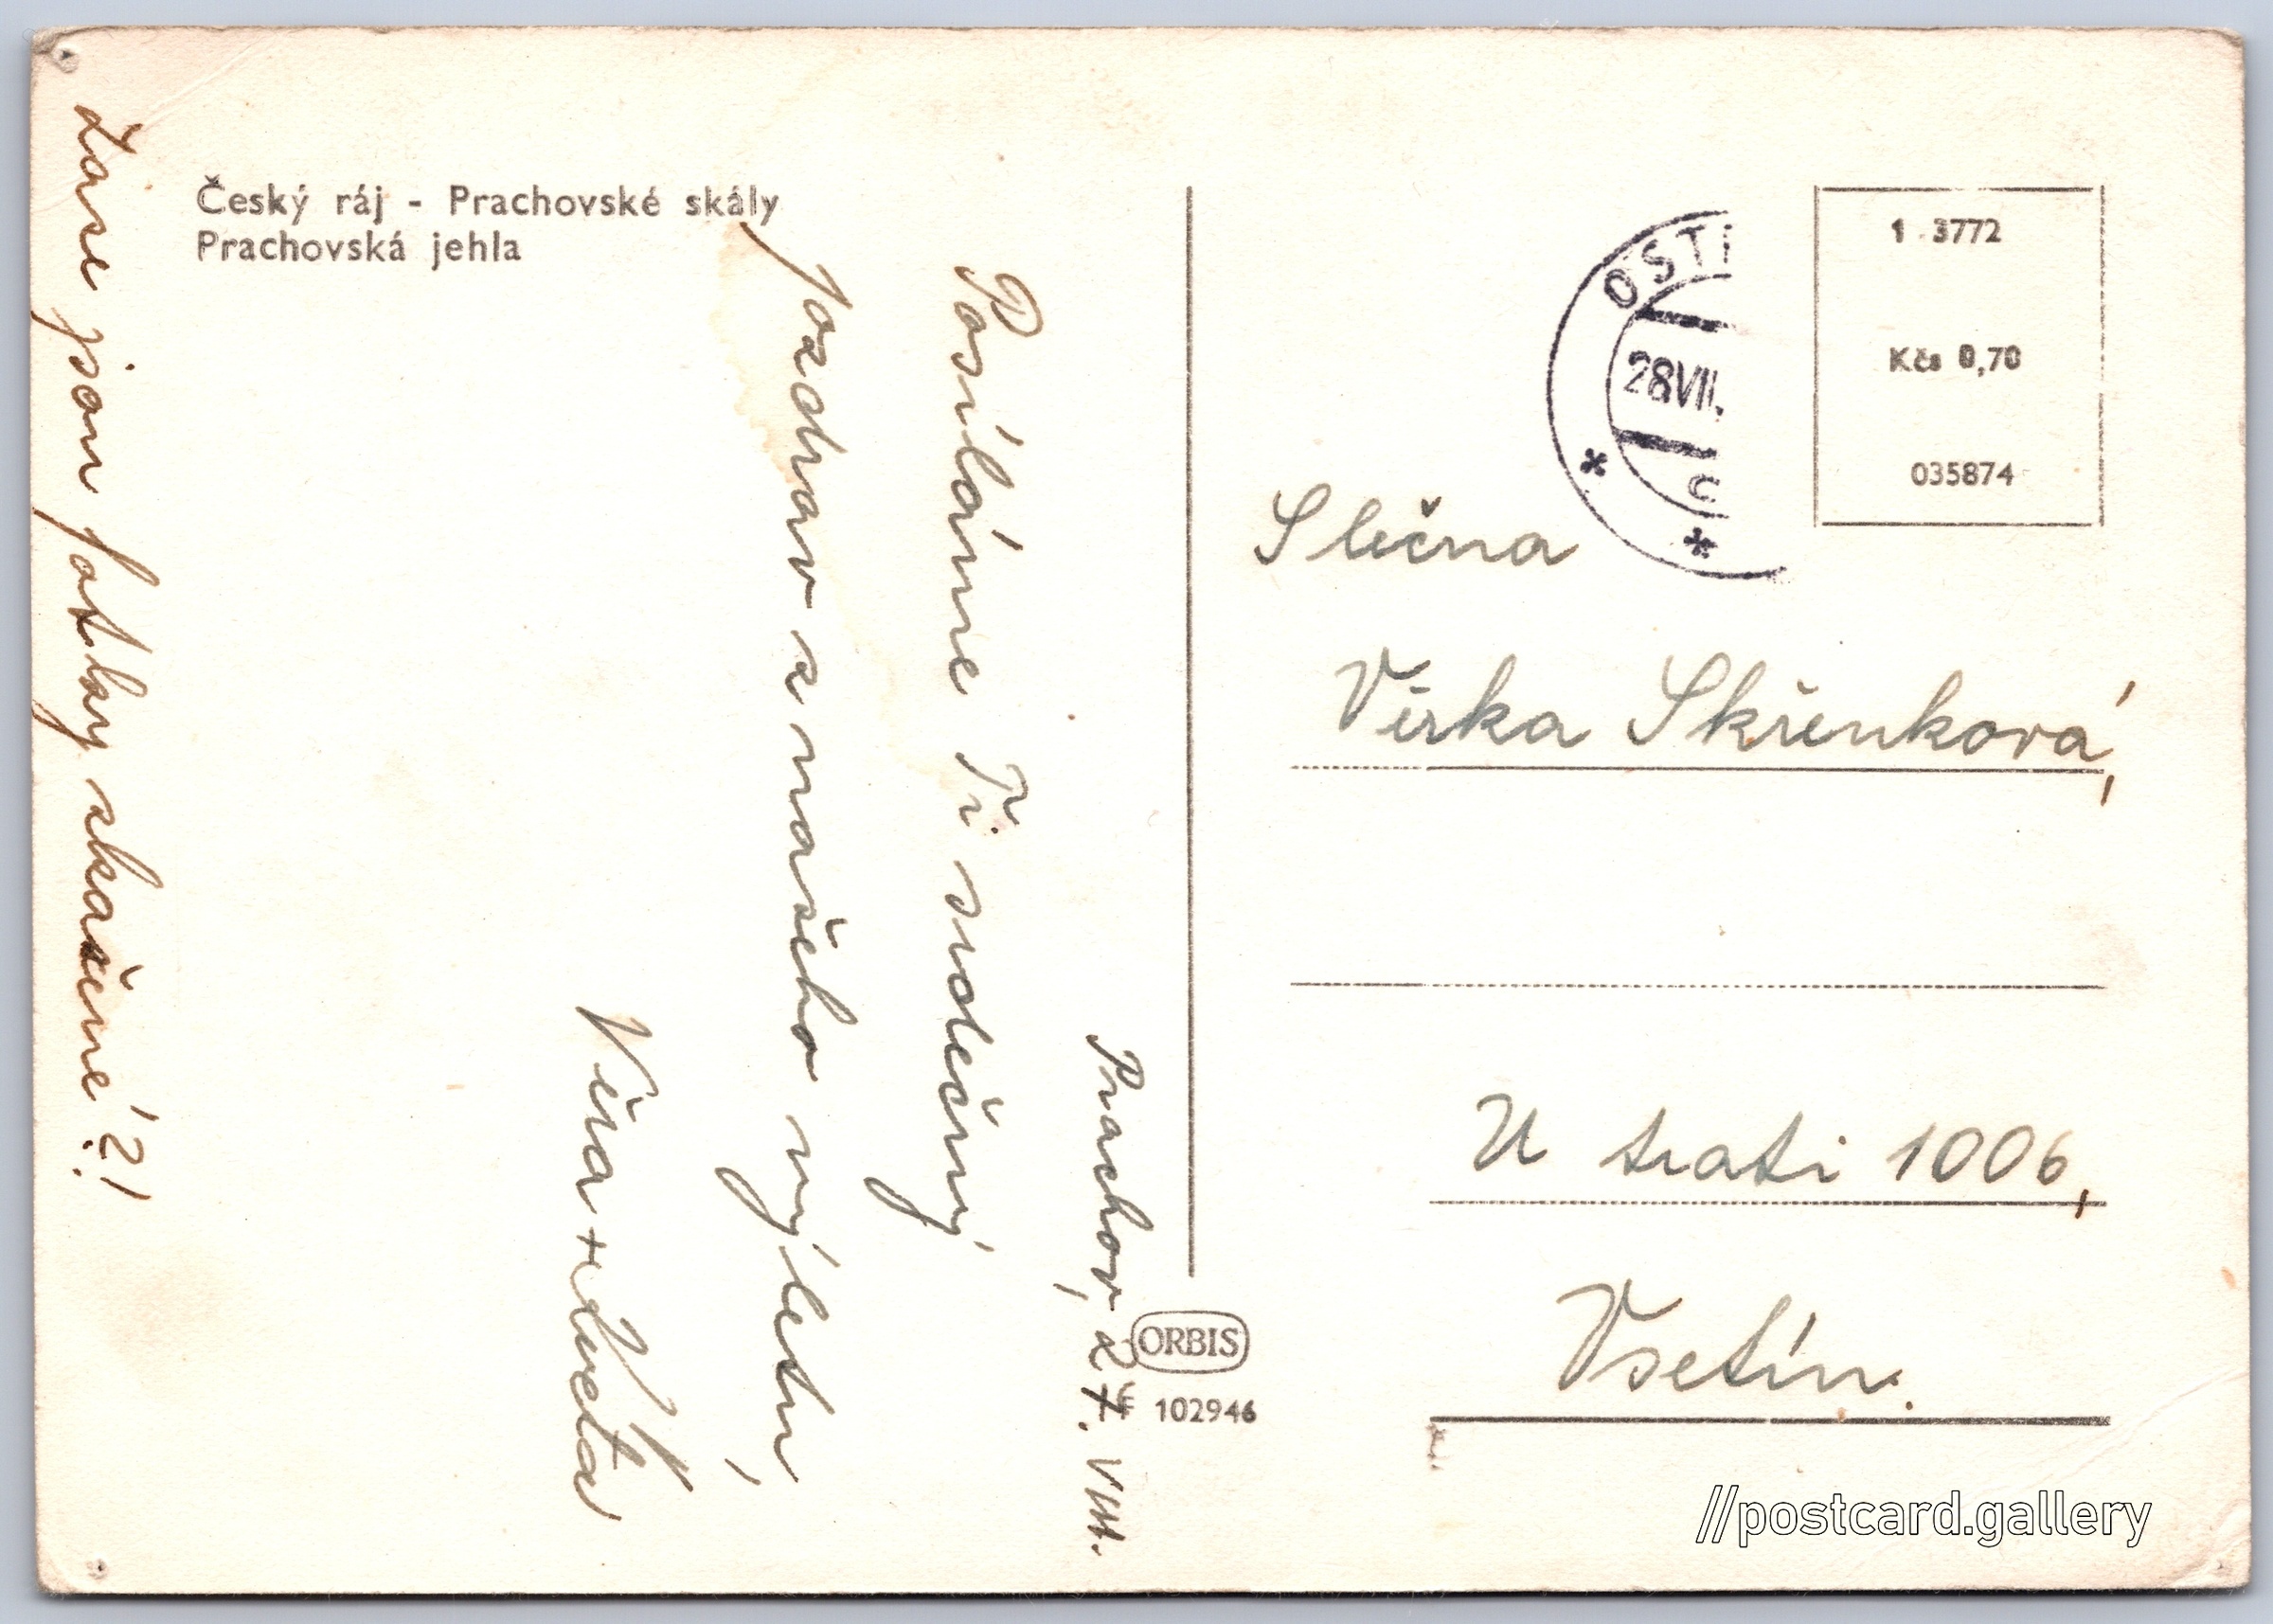 Český ráj - Prachovské skály
Prachovská jehla
Prachov, 27. VIII.
Posíláme Ti srdečný
pozdrav z našeho výletu,
Věra + Květa
Zase jsou fotky zkažené?!
OSTR
28.VII.
1 3772
Kčs 0,70
035874
Slečna
Věrka Skřenková,
U trati 1006,
Vsetín.
ORBIS
102946
//postcard.gallery